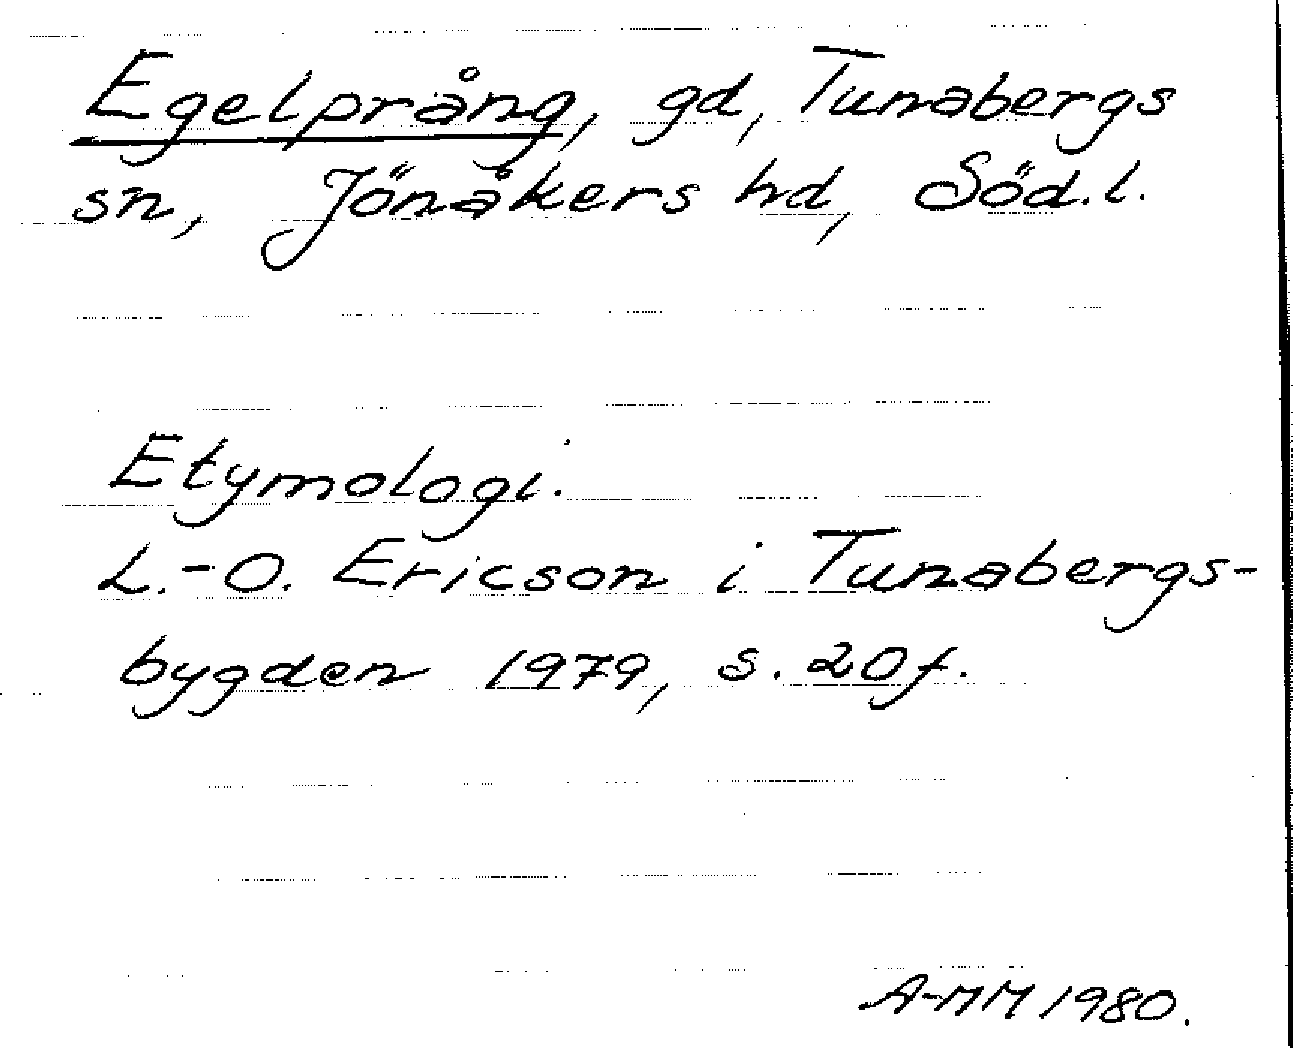 Egelprång, gd, Tunabergs
sn, Jönåkers hd, Söd.l.
Etymologi.
L.-O. Ericson i Tunabergs-
bygden 1979, s. 20f.
A-MM 1980.